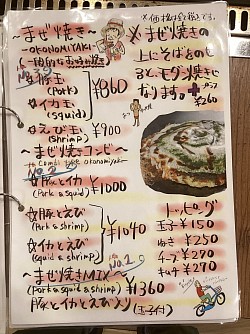 ※価格は全税です。
～まぜ焼き～
-OKONOMIYAKI-
(一般的なお好み焼き)
☆豚玉
(Pork)
☆イカ玉
(squid)
¥860
☆えび玉 ¥900
(shrimp)
※まぜ焼きの
上にそばをのせ
ると、モダン焼きに
なります。
¥260
～まぜ焼コンビ～
Combi type okonomiyaki
No.2
☆豚とイカ ¥1000
(Pork & squid)
☆豚とえび
(Pork & shrimp)
☆イカとえび
(squid & shrimp)
¥1040
No.1
～まぜ焼きMIX～
(Pork & squid & shrimp) ¥1360
豚とイカとえび入り(玉子付)
トッピング
玉子 ¥150
ねぎ ¥250
チーズ ¥270
キムチ ¥270